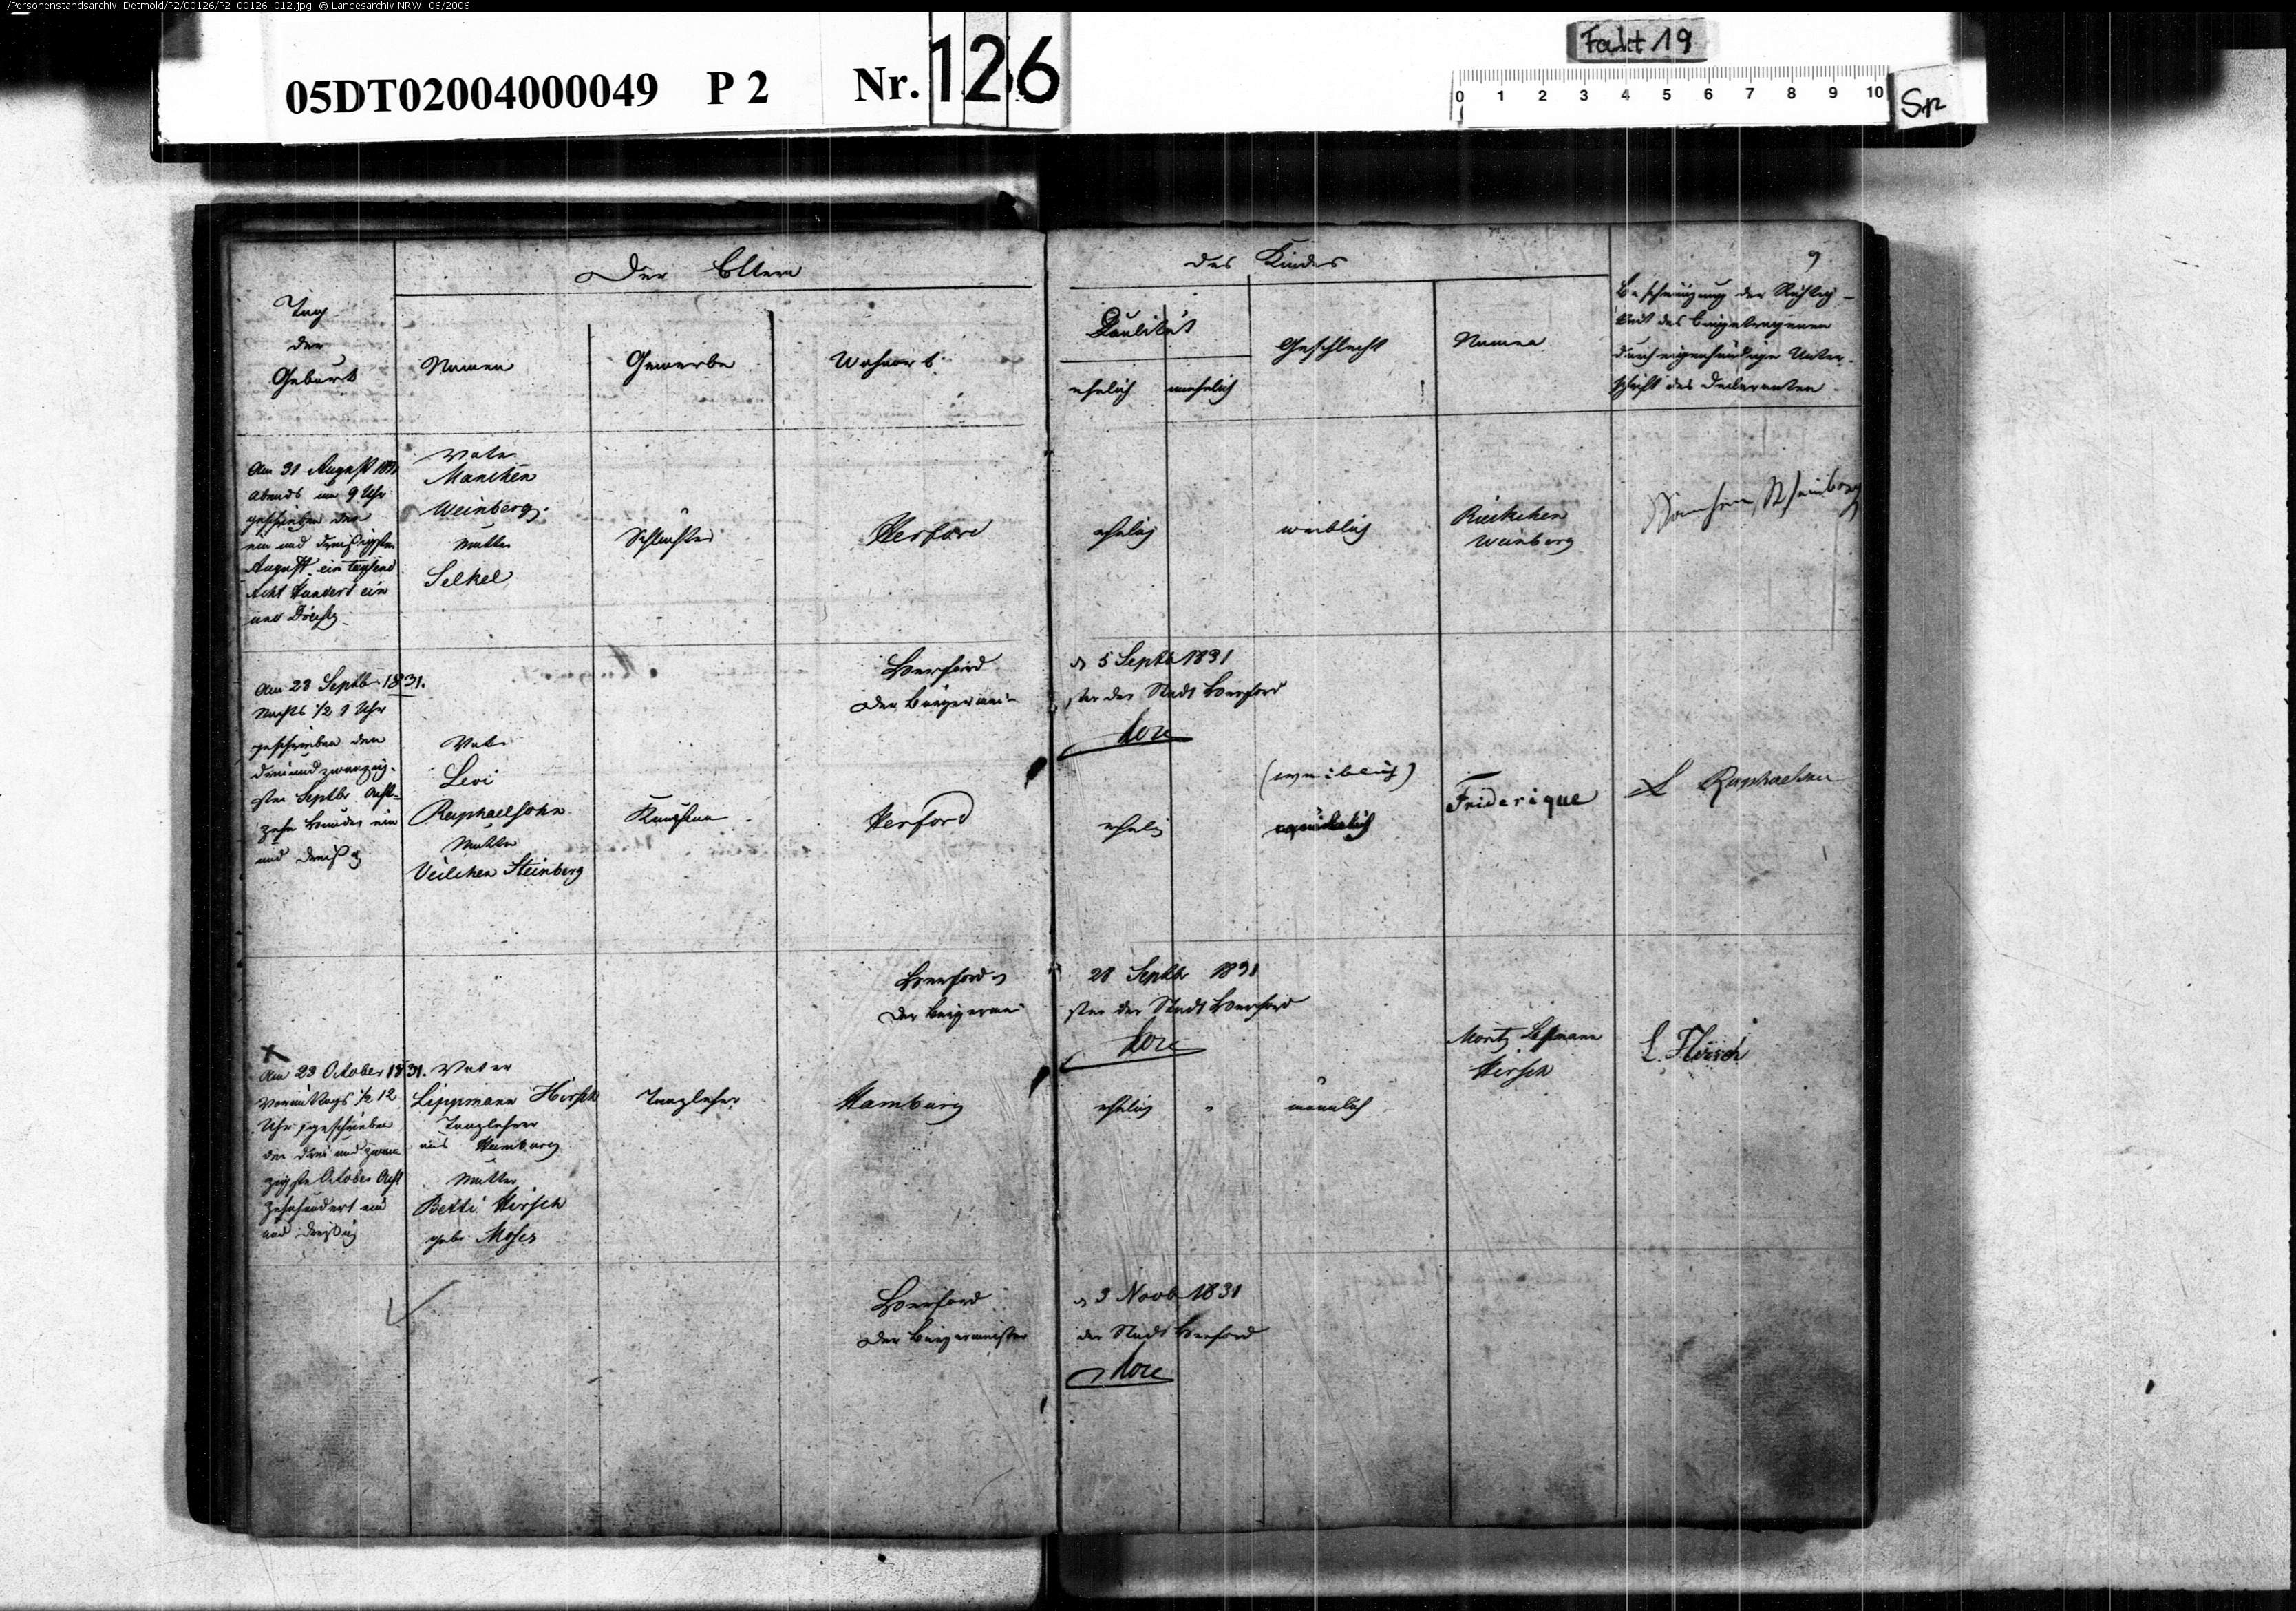 /Personenstandsarchiv_Detmold/P2/00126/P2_00126_012.jpg © Landesarchiv NRW 06/2006
05DT02004000049 P 2 Nr. 126
Fakt 19
0 1 2 3 4 5 6 7 8 9 10
Tag
der
Geburt
Der Eltern
Namen
Gewerbe
Wohnort
des Kindes
Qualität
ehelich
unehelich
Geschlecht
Namen
9
Bescheinigung der Richtig-
keit des Eingetragenen
durch eigenhändige Unter-
schrift des Declaranten
Am 31 August 1831
Abends um 9 Uhr
geschrieben den
ein und dreißigsten
August ein tausend
Acht Hundert ein
und Dreißig
Vater
Manchen
Weinberg.
Mutter
Selkel
Schlachter
Herford
ehelig
weiblich
Rieckchen
Weinberg
Herford
Der Bürgermei-
5 Septb 1831
ster der Stadt Herford
Rose
Am 23 Septbr 1831.
Nachts 1/2 1 Uhr
geschrieben den
drei und zwanzig-
sten Septbr Acht-
zehn Hundert ein
und dreißig
Vater
Levi
Raphaelsohn
Mutter
Veilchen Steinberg
Kaufman
Herford
ehelig
(weiblich)
Friderique
L Raphaelson
Herford
Der Bürgermei
28 Septbr 1831
ster der Stadt Herford
Rose
Am 23 October 1831.
Vormittags 1/2 12
Uhr, geschrieben
den drei und zwan
zigste October Acht
zehnhundert ein
und dreißig
Vater
Lippmann Hirsch
Tanzlehrer
aus Hamburg
Mutter
Betti Hirsch
geb. Moses
Tanzlehrer
Hamburg
ehelig
männlich
Moritz
Hirsch
L. Hirsch
Herford
Der Bürgermeister
3 Novb 1831
der Stadt Herford
Rose